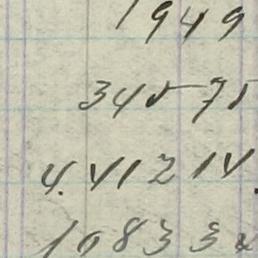 1949
34575
4.41214
108332